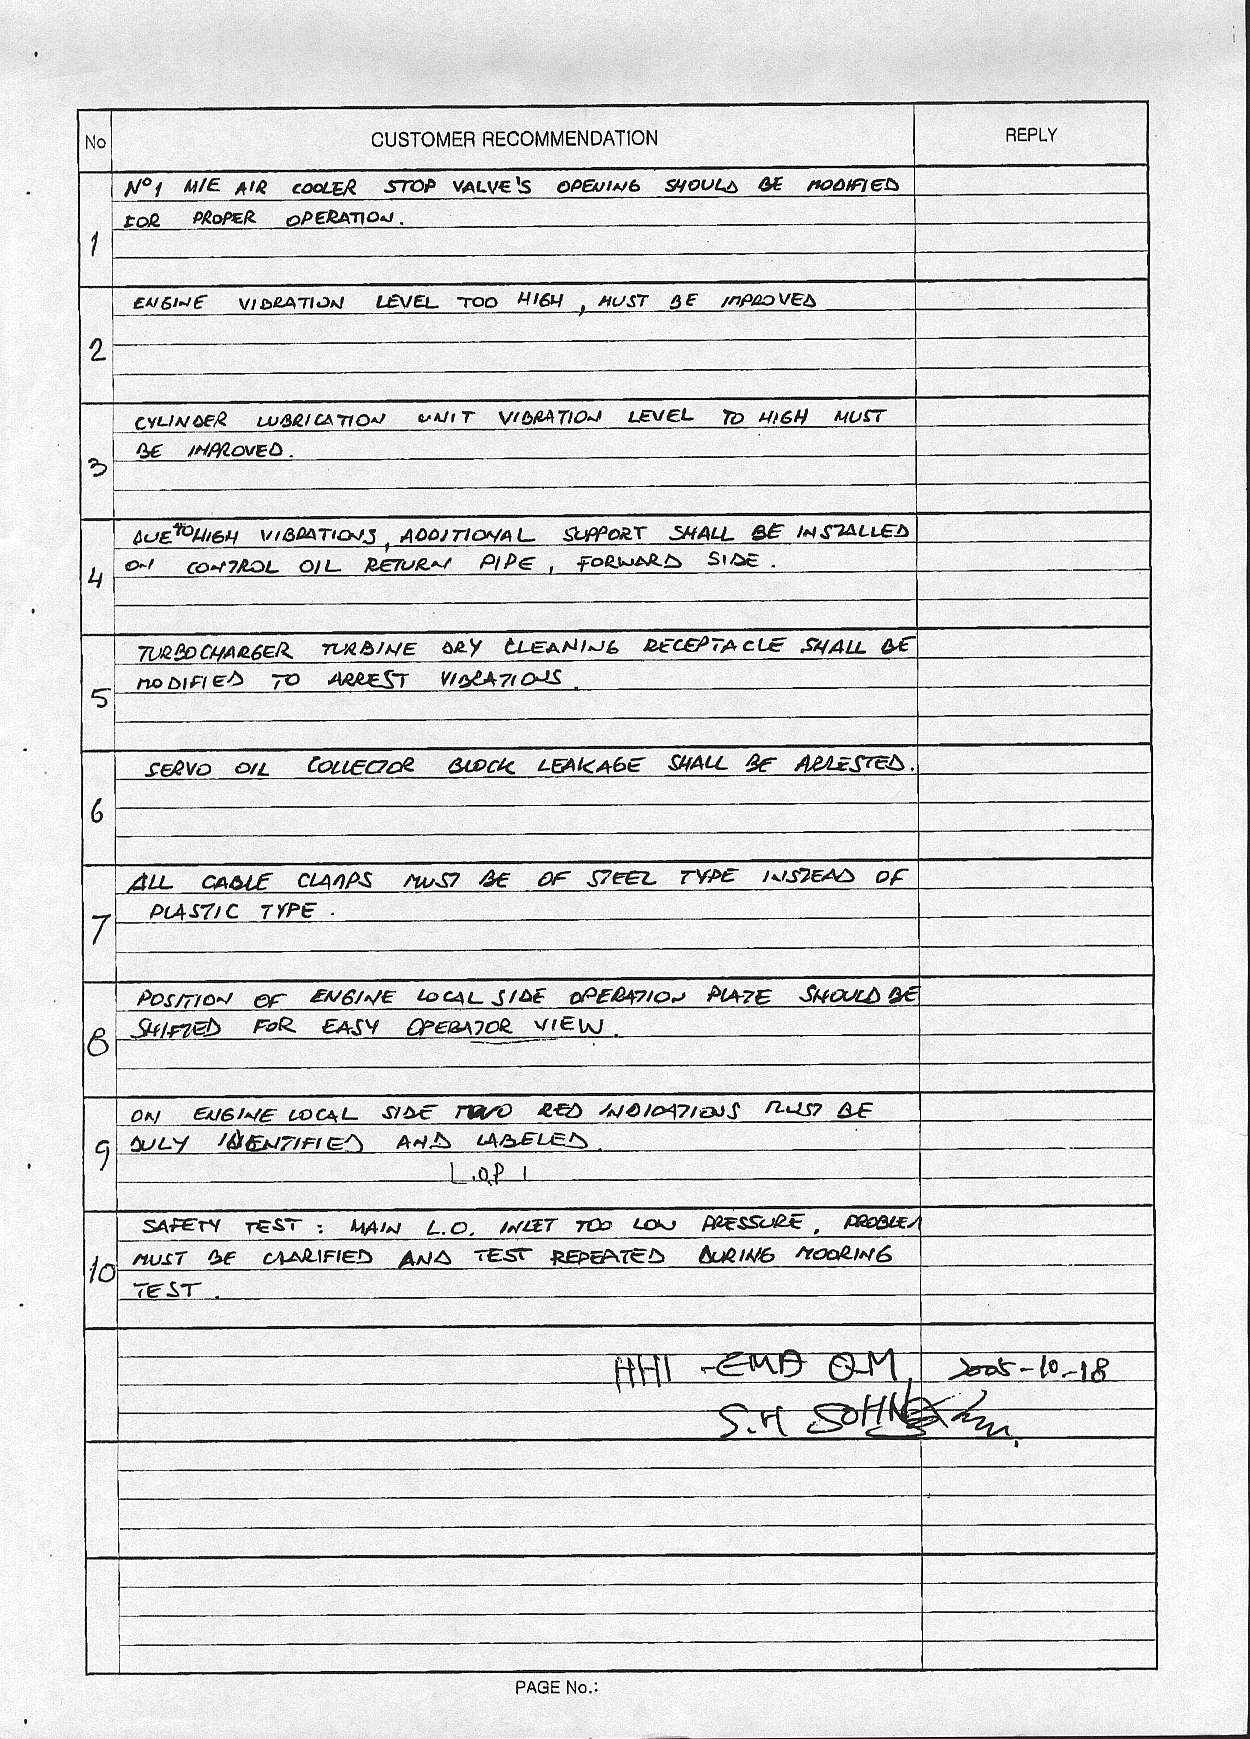 No CUSTOMER RECOMMENDATION REPLY
Nº1 M/E AIR COOLER STOP VALVE'S OPENING SHOULD BE MODIFIED
FOR PROPER OPERATION.
1
ENGINE VIBRATION LEVEL TOO HIGH, MUST BE IMPROVED
2
CYLINDER LUBRICATION UNIT VIBRATION LEVEL TO HIGH MUST
BE IMPROVED.
3
DUE TO HIGH VIBRATIONS, ADDITIONAL SUPPORT SHALL BE INSTALLED
ON CONTROL OIL RETURN PIPE, FORWARD SIDE.
4
TURBOCHARGER TURBINE DRY CLEANING RECEPTACLE SHALL BE
MODIFIED TO ARREST VIBRATIONS.
5
SERVO OIL COLLECTOR BLOCK LEAKAGE SHALL BE ARRESTED.
6
ALL CABLE CLAMPS MUST BE OF STEEL TYPE INSTEAD OF
PLASTIC TYPE.
7
POSITION OF ENGINE LOCAL SIDE OPERATION PLATE SHOULD BE
SHIFTED FOR EASY OPERATOR VIEW.
8
ON ENGINE LOCAL SIDE TWO RED INDICATIONS MUST BE
DULY IDENTIFIED AND LABELED.
9
L.O.P 1
SAFETY TEST: MAIN L.O. INLET TOO LOW PRESSURE, PROBLEM
MUST BE CLARIFIED AND TEST REPEATED DURING MOORING
10
TEST.
HHI-EMD QM, 2005-10-18
S.H SOHN
PAGE No.: